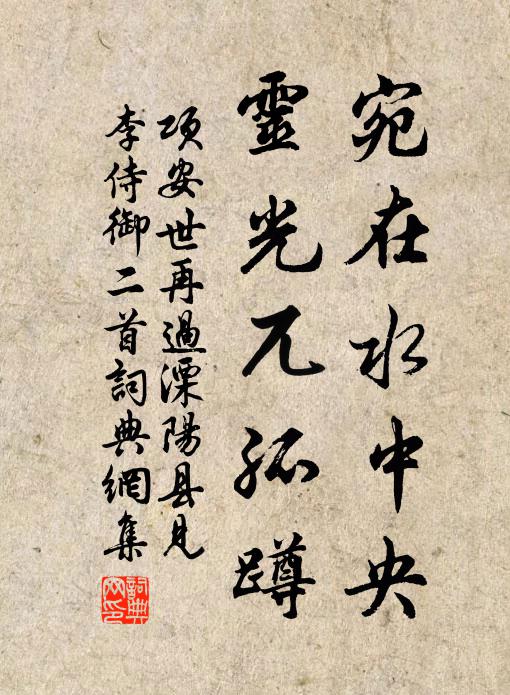 宛在水中央
靈光兀孤蹲
項安世再過溧陽县見
李侍御二首詞典網集
詞典網印